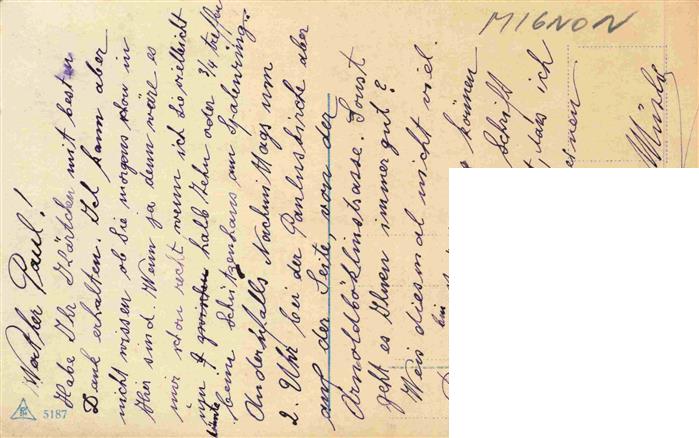 Werter Paul!
Habe Ihr Kärtchen mit besten
Dank erhalten. Ich kann aber
nicht wissen ob Sie morgens schon in
Hier sind. Wenn ja dann wäre es
mir schon recht wenn ich Sie vielleicht
um halb zehn oder 3/4 treffen
könnte
beim Schützenhaus am Spalenring.
Andernfalls Nachmittags um
2. Uhr bei der Pauluskirche aber
auf der Seite, von der
Arnoldböklinstrasse. Sonst
geht es Ihnen immer gut?
Weis diesmal nicht viel.
bin
können
Schrift
, dass ich
MIGNON
5187